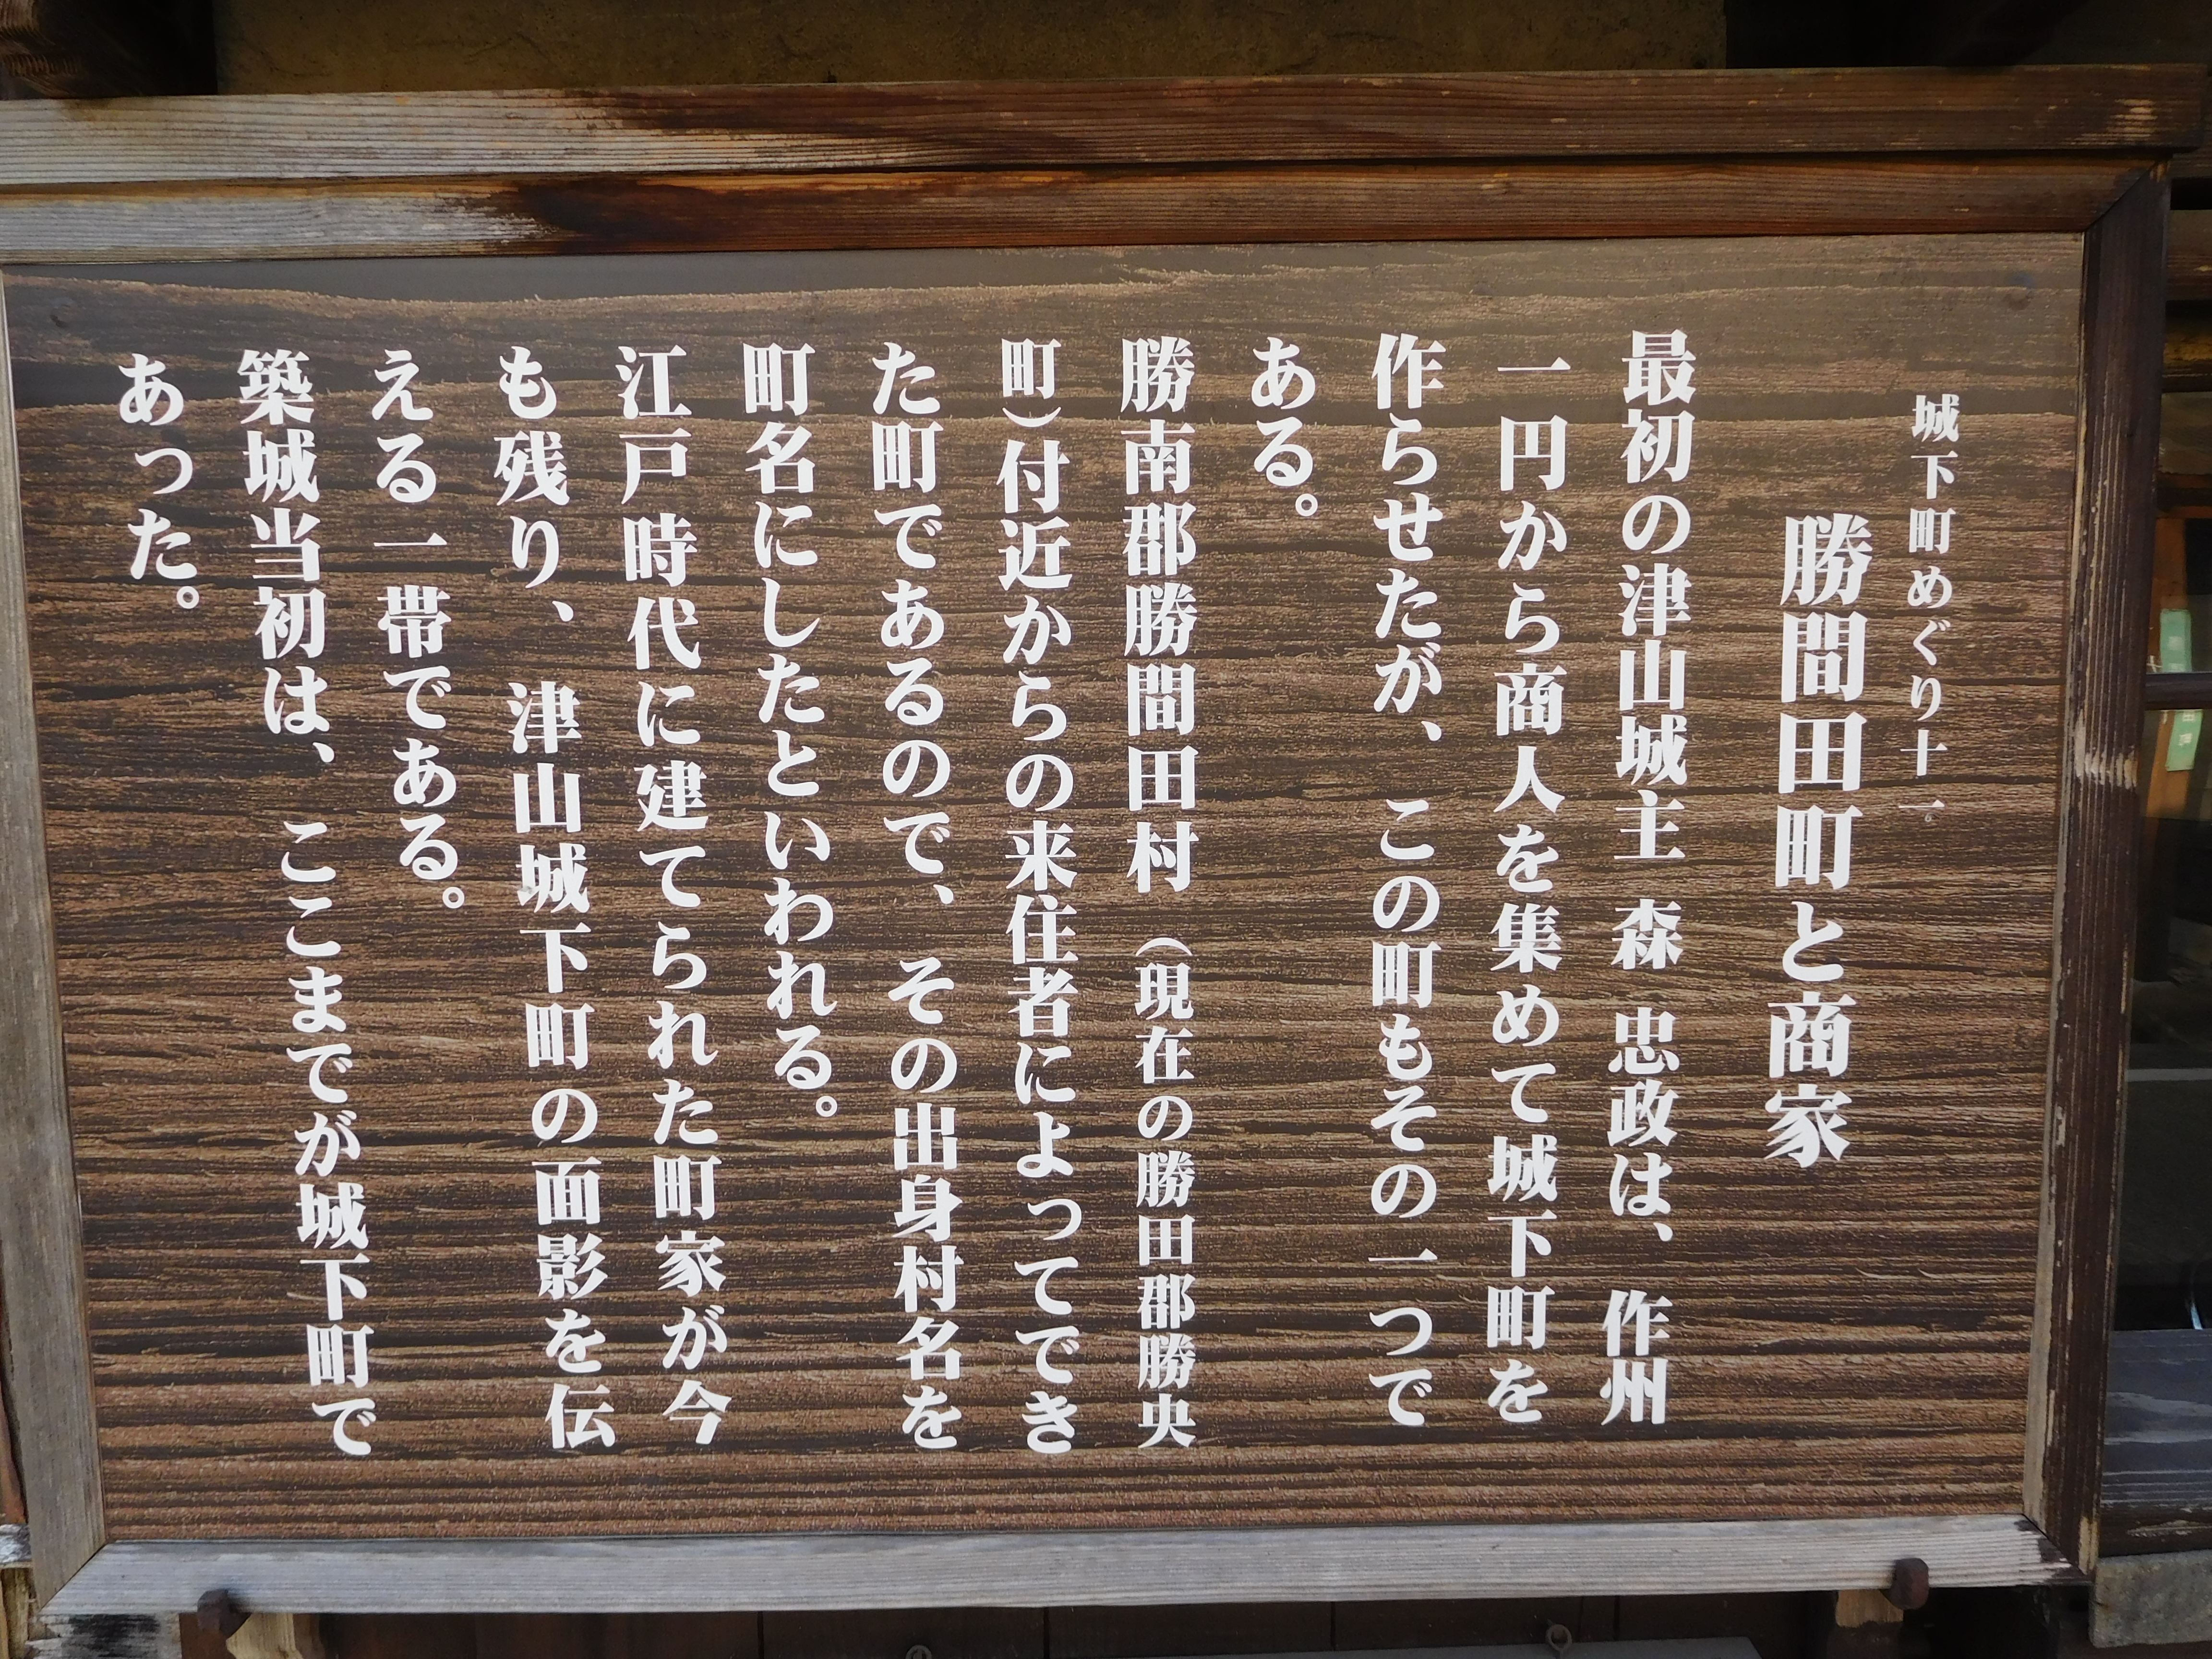 城下町めぐり十一。
勝間田町と商家
最初の津山城主 森 忠政は、作州
一円から商人を集めて城下町を
作らせたが、この町もその一つで
ある。
勝南郡勝間田村（現在の勝田郡勝央
町）付近からの来住者によってでき
た町であるので、その出身村名を
町名にしたといわれる。
江戸時代に建てられた町家が今
も残り、津山城下町の面影を伝
える一帯である。
築城当初は、ここまでが城下町で
あった。